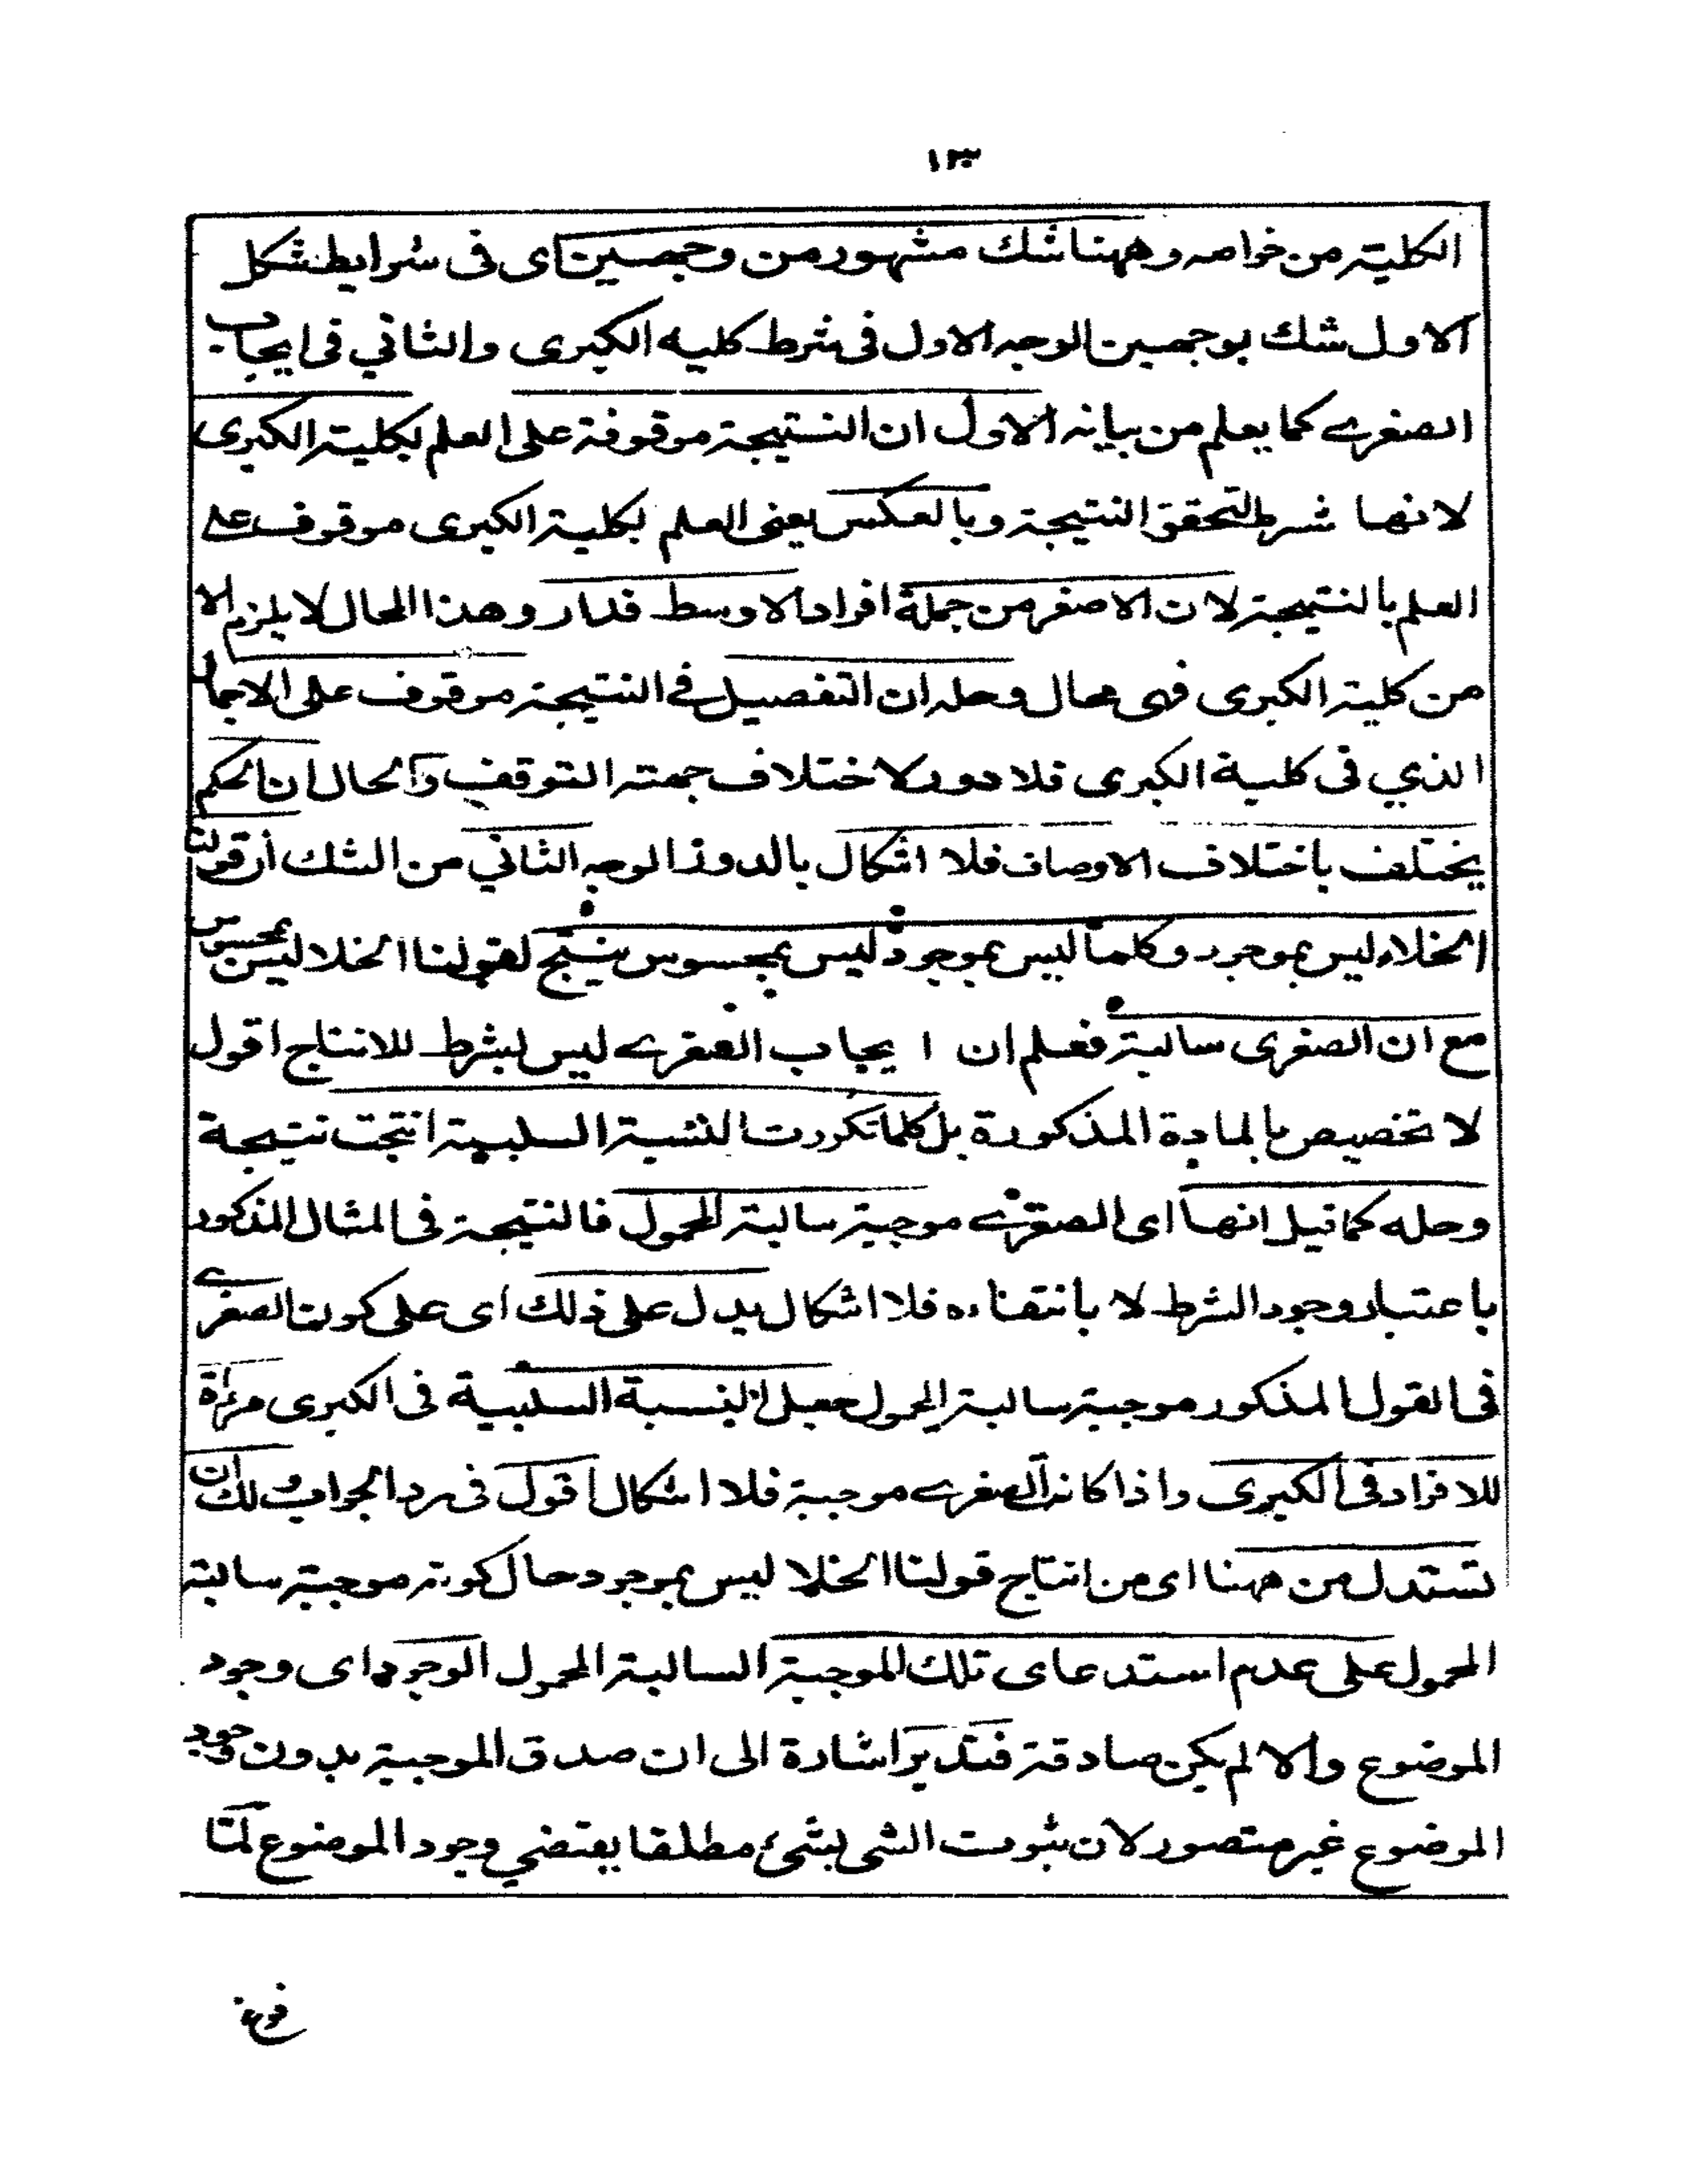 ١٣
الكلية من خواصه وههنا شك مشهور من وجهين اى فى شرايط شكل
الاول شك بوجهين الوجه الاول فى شرط كليه الكبرى والثاني فى ايجاب
الصغرے كما يعلم من بيانه الاول ان النتيجة موقوفة على العلم بكلية الكبرى
لانها شرط لتحقق النتيجة وبالعكس يعنى العلم بكلية الكبرى موقوف على
العلم بالنتيجة لان الاصغر من جملة افراد الاوسط فدار وهذا المحال لا يلزم الا
من كلية الكبرى فهى محال وحله ان التفصيل فے النتيجة موقوف على الاجمال
الذي فى كلية الكبرى فلا دور لاختلاف جهته التوقف والحال ان الحكم
يختلف باختلاف الاوصاف فلا اشكال بالدور الوجه الثاني من الشك ان قولنا
الخلاء ليس بموجود وكلما ليس بموجود ليس بمحسوس ينتج لقولنا الخلا ليس بمحسوس
مع ان الصغرى سالبة فعلم ان ايجاب الصغرے ليس بشرط للانتاج اقول
لا تخصيص بالمادة المذكورة بل كلما تكررت النسبة السلبية انتجت نتيجة
وحله كما قيل انها اى الصغرے موجبة سالبة المحمول فالنتيجة فى المثال المذكور
باعتبار وجود الشرط لا بانتفاءه فلا اشكال يدل على ذلك اى على كون الصغرے
فى القول المذكور موجبة سالبة المحمول جعل النسبة السلبية فى الكبرى مرءاة
للافراد فى الكبرى واذا كانت الصغرے موجبة فلا اشكال اقول فى رد الجواب ولك ان
تستدل من ههنا اى من انتاج قولنا الخلا ليس بموجود حال كونه موجبة سالبة
المحمول على عدم استدعاى تلك الموجبة السالبة المحمول الوجود اى وجود
الموضوع والا لم يكن صادقة فتدبر اشارة الى ان صدق الموجبة بدون وجود
الموضوع غير متصور لان ثبوت الشى لشئ مطلقا يقتضي وجود الموضوع لمّا